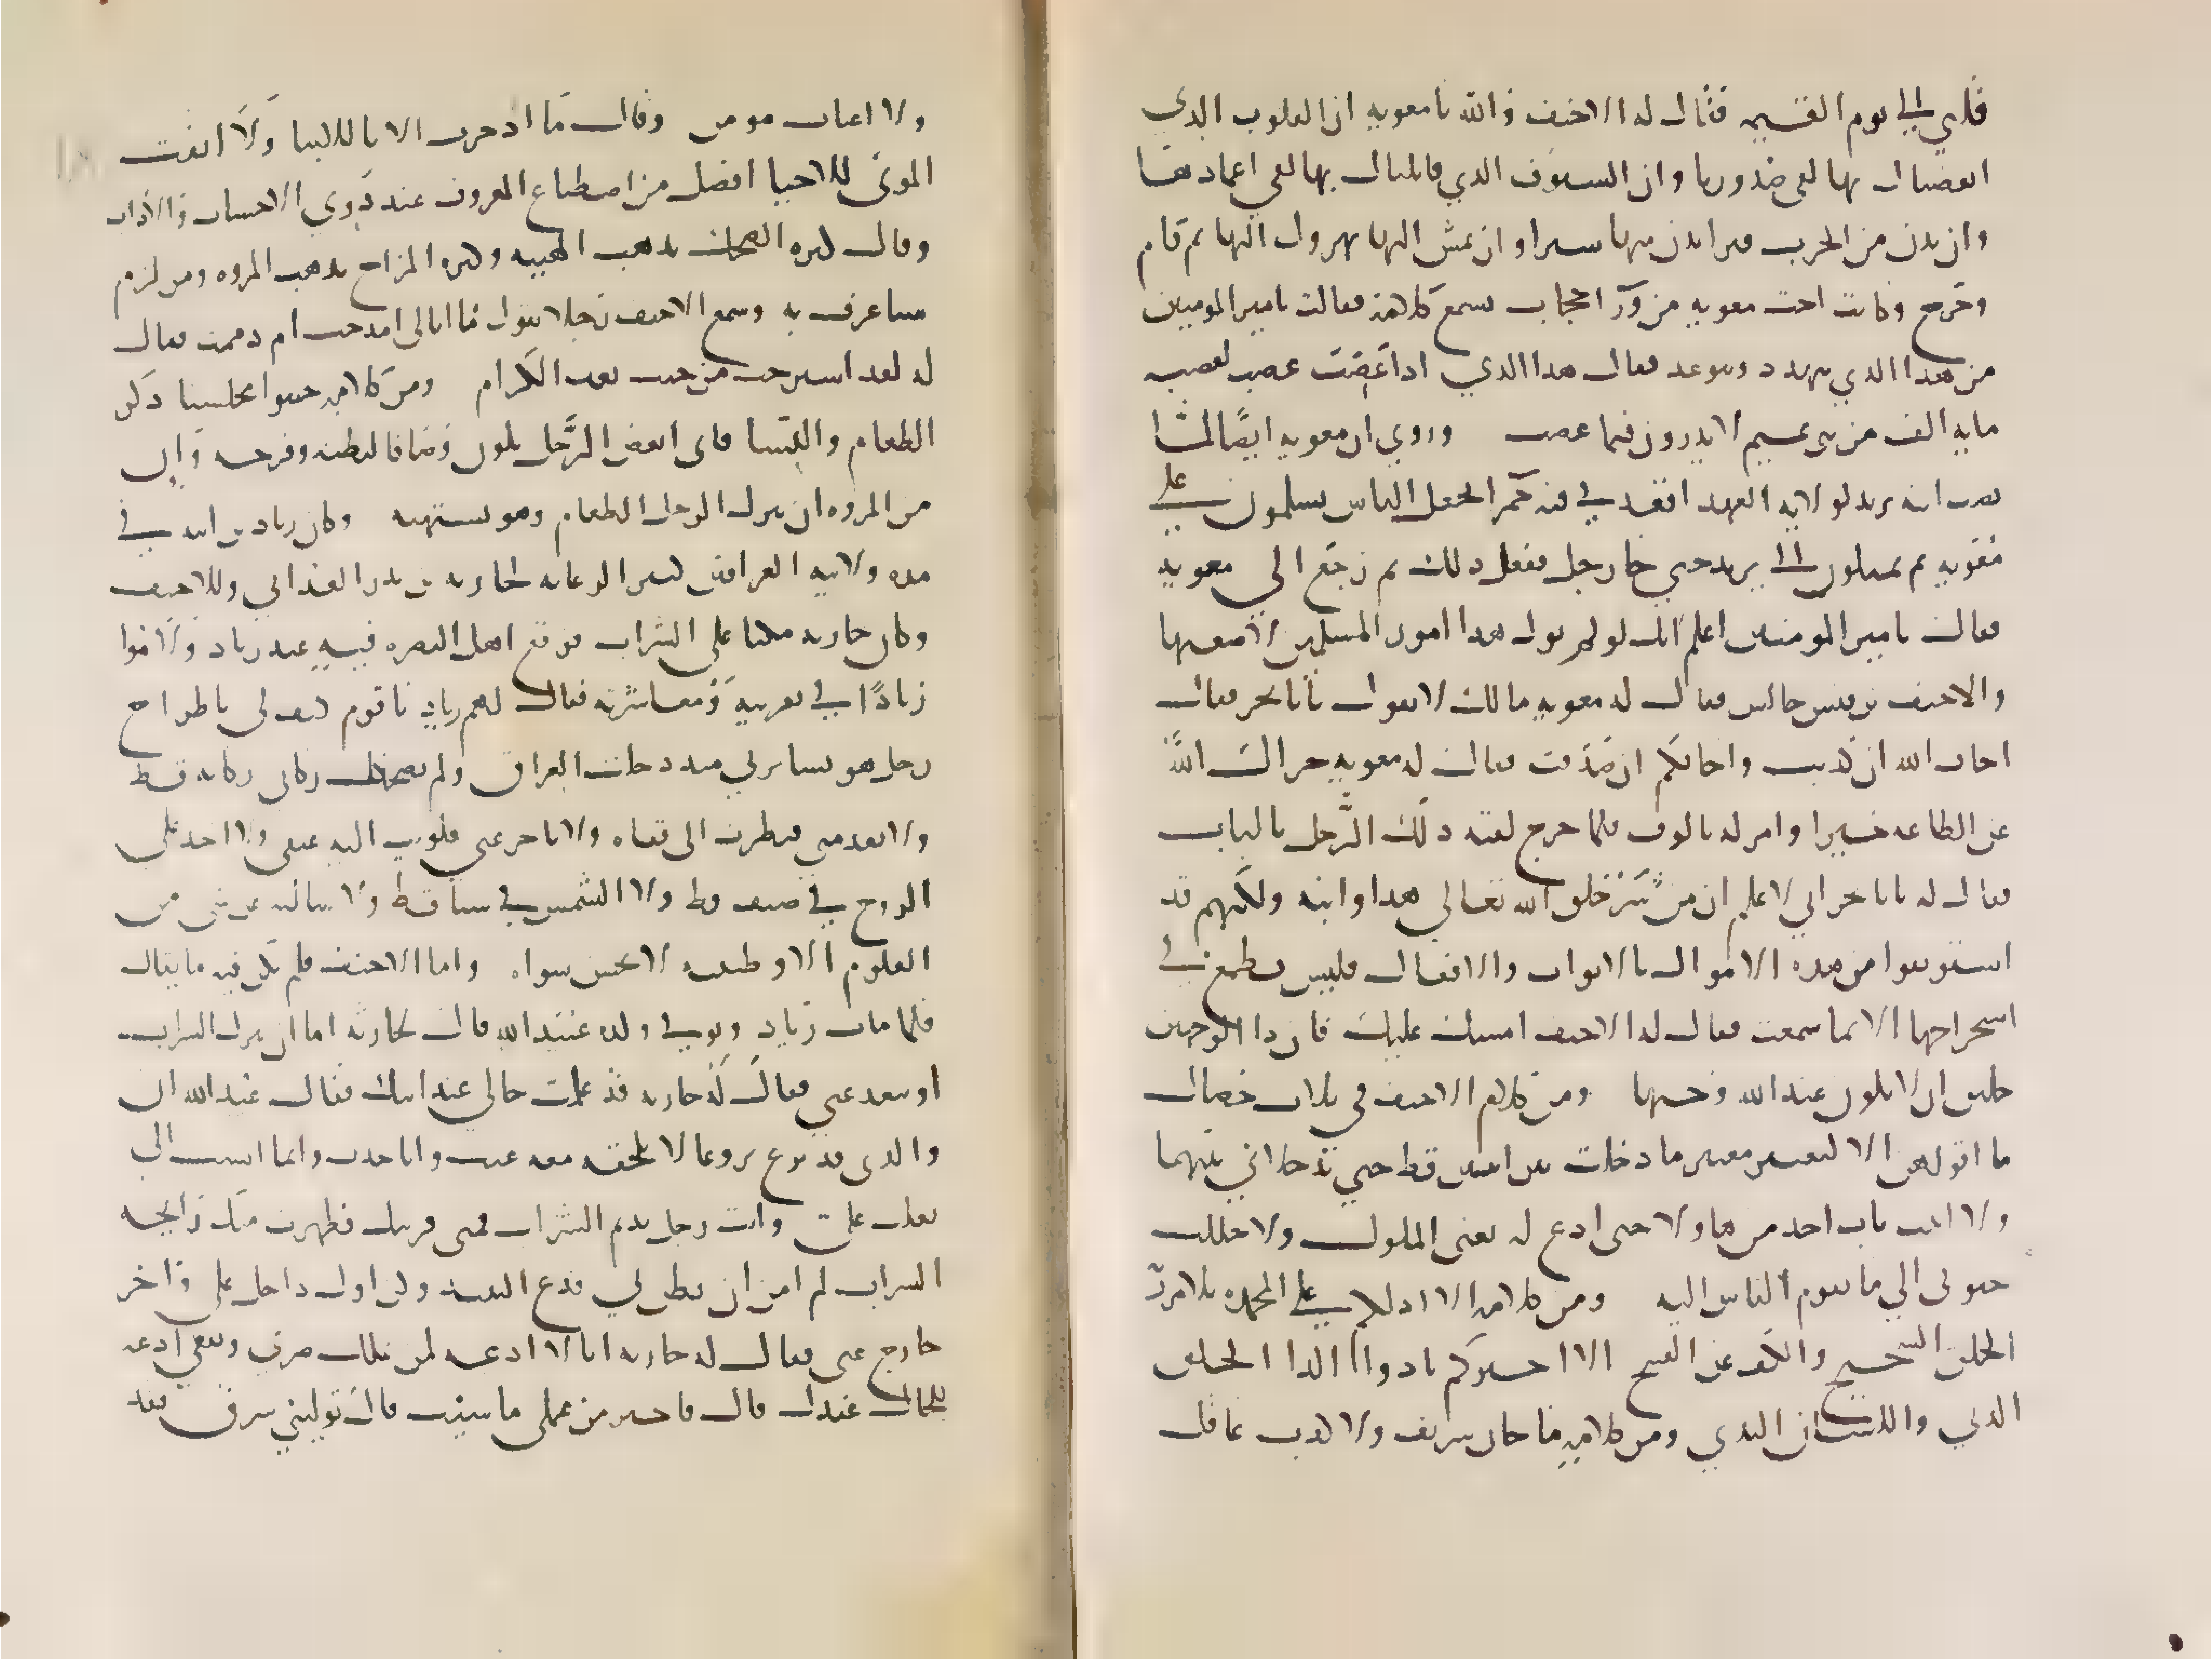 قلبي الي يوم القيمه فقال له الاحنف والله يا معويه ان القلوب الذي
ابغضناك بها لفي صدورنا وان السيوف الذي قاتلناك بها لفي اغمادها
وان تدن من الحرب فترا ندن منها شبرا وان تمش اليها نهرول اليها ثم قام
وخرج وكانت اخت معويه من ورآ حجاب تسمع كلامه فقالت يا امير المومنين
من هذا الذي يتهدد ويتوعد فقال هذا الذي اذا غضب غضب لغضبه
مايه الف من بني تميم لا يدرون فيما غضب وروي ان معويه ايضا لما
نصب ابنه يزيد لولايه العهد اقعده في قبه حمرا فجعل الناس يسلمون علي
معويه ثم يميلون الى يزيد حتي جا رجل ففعل ذلك ثم رجع الي معويه
فقال يا امير المومنين اعلم انك لو لم تول هذا امور المسلمين لاضعتها
والاحنف بن قيس جالس فقال له معويه ما لك لا تقول يا ابا بحر فقال
اخاف الله ان كذبت واخافكم ان صدقت فقال له معويه جزاك الله
عن الطاعه خيرا وامر له بالوف فلما خرج لقيه ذلك الرجل بالباب
فقال له يا ابا بحر اني لاعلم ان من شر خلق الله تعالي هذا وابنه ولكنهم قد
استوثقوا من هذه الاموال بالابواب والاقفال فليس نطمع في
استخراجها الا بما سمعت فقال له الاحنف امسك عليك فان ذا الوجهين
خليق ان لا يكون عند الله وجيها ومن كلام الاحنف في ثلاث خصال
ما اقولهن الا ليعتبر معتبر ما دخلت بين اثنين قط حتي يدخلاني بينهما
ولا اتيت باب احد من هاولا حتى ادع له يعني الملوك ولا حللت
حبوتي الي ما يقوم الناس اليه ومن كلامه الا ادلكم علي المحمده بلا مرزه
الخلق السجيح والكف عن القبيح الا اخبركم بادوا الدا الخلق
الدني واللسان البذي ومن كلامه ما خان شريف ولا كذب عاقل
ولا اغتاب مومن وقال ما ادخرت الابا للابنا ولا ابقت
الموتى للاحيا افضل من اصطناع المعروف عند ذوي الاحساب والاداب
وقال كثره الضحك تذهب الهيبه وكثره المزاح تذهب المروه ومن لزم
شيا عرف به وسمع الاحنف رجلا يقول ما ابالي امدحت ام ذممت فقال
له لقد استرحت من حيث تعب الكرام ومن كلامه جنبوا مجلسنا ذكر
الطعام والنسا فاني ابغض الرجل يكون وصافا لبطنه وفرجه وان
من المروه ان يترك الرجل الطعام وهو يشتهيه وكان زياد بن ابيه في
مده ولايته العراقين كثير الرعايه لحارثه بن بدر الغداني وللاحنف
وكان حارثه مكبا على الشراب فوقع اهل البصره فيه عند زياد ولاموا
زيادا في تقريبه ومعاشرته فقال لهم زياد يا قوم كيف لي باطراح
رجل هو يسايرني منذ دخلت العراق ولم يصكك ركابي ركابه قط
ولا تقدمني فنظرت الى قفاه ولا تاخر عني فلويت اليه عنقي ولا اخذ علي
الروح في صيف قط ولا الشمس في شتا قط ولا سالته عن شي من
العلوم الا وظننته لا يحسن سواه واما الاحنف فلم يكن فيه ما يقال
فلما مات زياد وتولى ولده عبيد الله قال لحارثه اما ان تترك الشراب
او تبعد عني فقال له حارثه قد علمت حالي عند ابيك فقال عبيد الله ان
والدي قد برع بروعا لا يلحقه معه عيب وانا حدث وانما انسب الي
تغلب علي وانت رجل تديم الشراب فمتى قربتك فظهرت منك رايحه
الشراب لم امن ان يظن بي فدع النبيذ وكن اول داخل علي واخر
خارج عني فقال له حارثه انا لا ادعه لمن يملك ضري ونفعي ادعه
للحال عندك قال فاختر من عملي ما شيت قال توليني سرق فقد